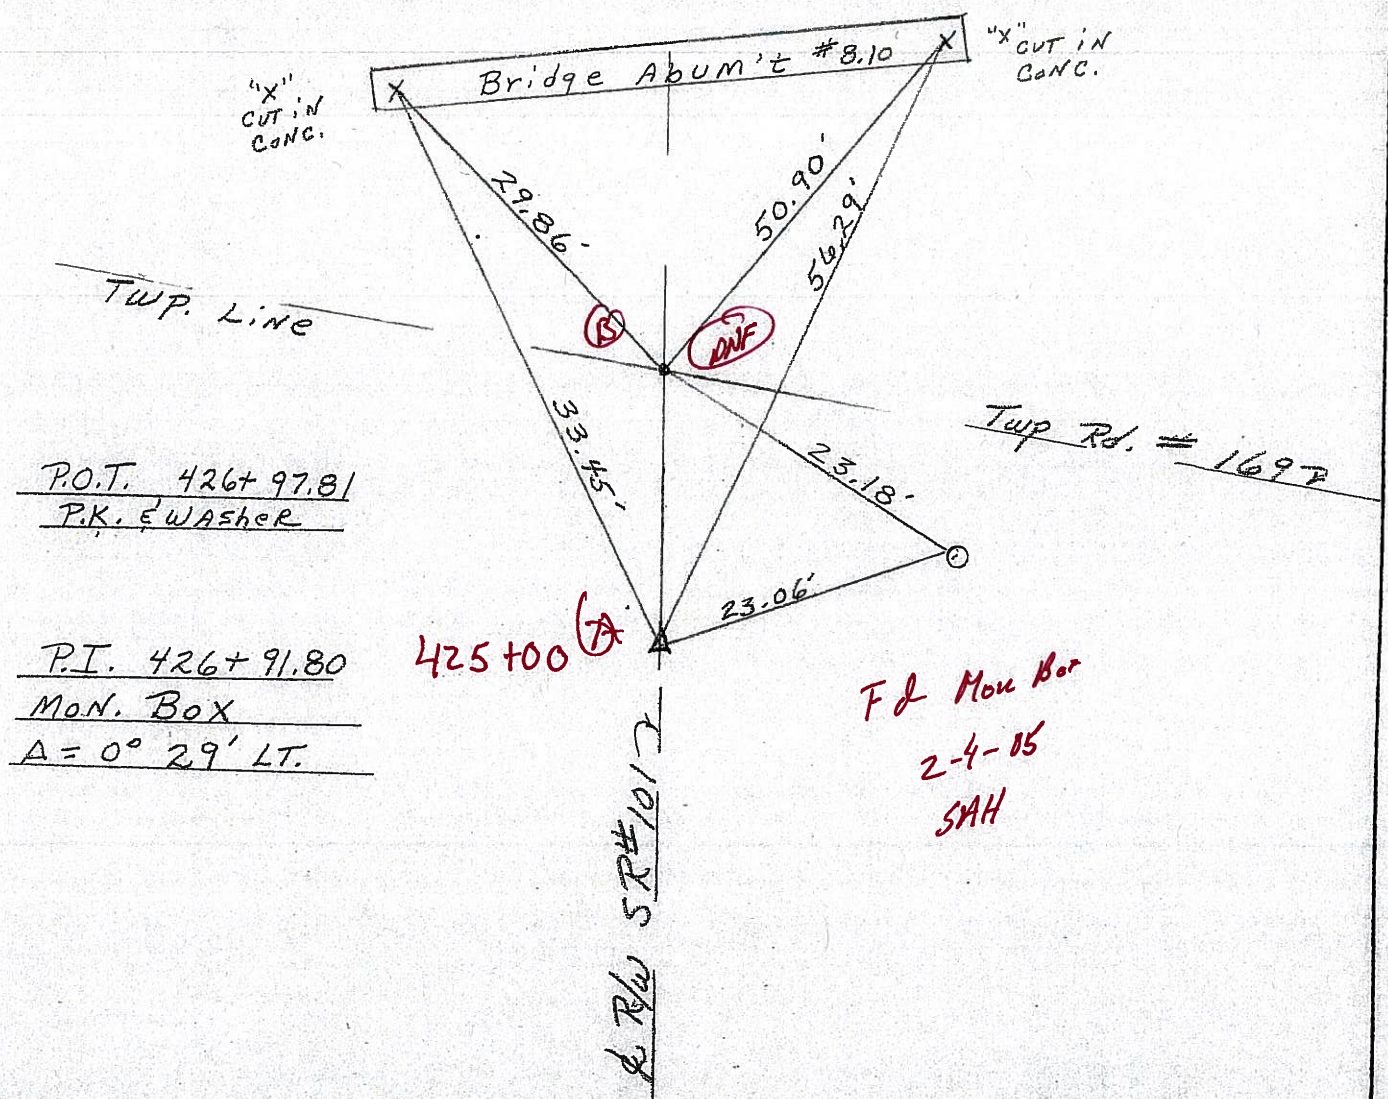 "X" CUT IN
CONC.
Bridge Abum't #8.10
"X"
CUT IN
CONC.
29.86'
50.90'
56.29'
Twp. Line
B
DNF
33.45'
23.18'
Twp Rd. # 169
P.O.T. 426+97.81
P.K. & WASHER
23.06'
425+00 A
P.I. 426+91.80
MON. BOX
Δ = 0° 29' LT.
Fd Mon Box
2-4-05
SAH
R/W SR#101